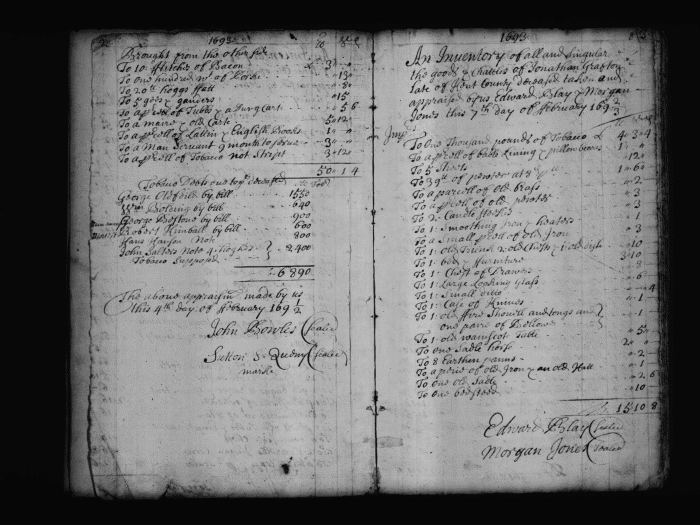 1693
Brought from the other side
To 10 flitches of Bacon 3
To one hundred wt. of Porke 13
To 20tt hoggs ffatt 8
To 5 geese & ganders 15
To a pcell of Tubbs & a Dung Cart 5 6
To a maire & old Cart 5 12
To a pcell of Lattin & English Books 1
To a Man Servant 9 months to serve 3
To a pcell of Tobacco not Stript 3 12
50 1 4
Tobacco Debts due to ye deceased
George Oldfeild by bill 1550
by bill 640
George Bostone by bill 900
Robert Kimball by bill 600
Hans Hanson Note 800
John Salters Note 4 hoghds 2400
Tobacco Supposed
6890
The above appraismt made by us
this 4th day of ffebruary 1692
John Bowles Seale
Seale
marke
1693
An Inventory of all and Singular
the goods & Chattles of Jonathan Grafton
late of Kent County deceased taken and
appraised by us Edward Blay & Morgan
Jones this 7th day of ffebruary 1692
To One Thousand pounds of Tobacco 4 3 4
To a pcell of Lining & pillow beares 1
To 5 Sheets 12
To 39tt of pewter at 8d 1 6
To a parcell of old brass 2
To a pcell of old pewter 3
To 2 Candle sticks
To 1 Smoothing Iron & heaters 1
To a Small pcell of old Iron 3
To 1 old Trunk 2 old Chests & 1 old 10
To 1 bed & ffurniture 3 10
To 1 Chest of Drawers 8
To 1 Large Looking Glass 6
To 1 Small ditto 4
To 1 Case of Knives 1
To 1 old ffire Shovell and tongs and
one paire of Bellows 1
To 1 old wainscot Table 5
To one Sadle horse 2
To 8 Earthen panns 1
To a pcell of old Iron & an old 2 6
To one old Sadle 2
To one bedsteed 10
15 10 8
Edward Blay Seale
Morgan Jones Seale